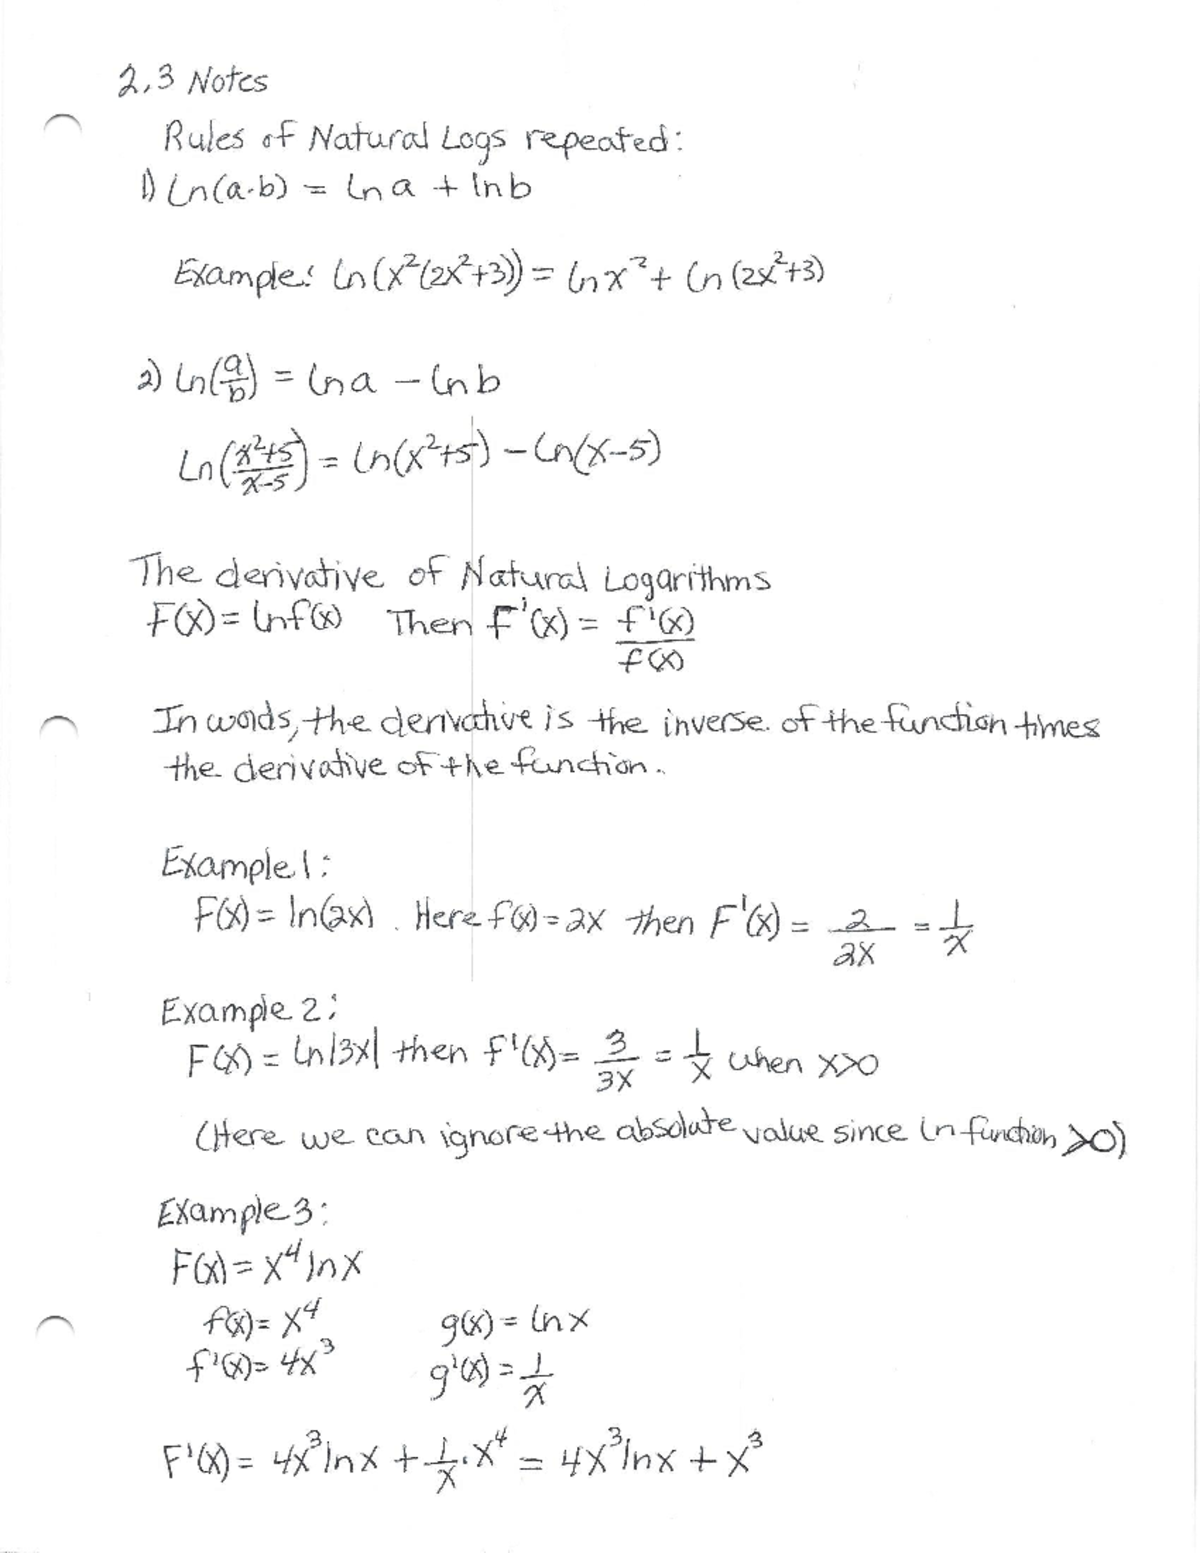 2.3 Notes
Rules of Natural Logs repeated:
1) Ln(a·b) = ln a + ln b
Example: Ln(x²(2x²+3)) = ln x² + ln(2x²+3)
2) Ln(a/b) = ln a − ln b
Ln((x²+5)/(x−5)) = ln(x²+5) − ln(x−5)
The derivative of Natural Logarithms
F(x) = ln f(x) Then F'(x) = f'(x)/f(x)
In words, the derivative is the inverse of the function times
the derivative of the function.
Example 1:
F(x) = ln(2x). Here f(x) = 2x then F'(x) = 2/2x = 1/x
Example 2:
F(x) = ln|3x| then f'(x) = 3/3x = 1/x when x>0
(Here we can ignore the absolute value since ln function >0)
Example 3:
F(x) = x⁴ ln x
f(x) = x⁴ g(x) = ln x
f'(x) = 4x³ g'(x) = 1/x
F'(x) = 4x³ ln x + 1/x · x⁴ = 4x³ ln x + x³